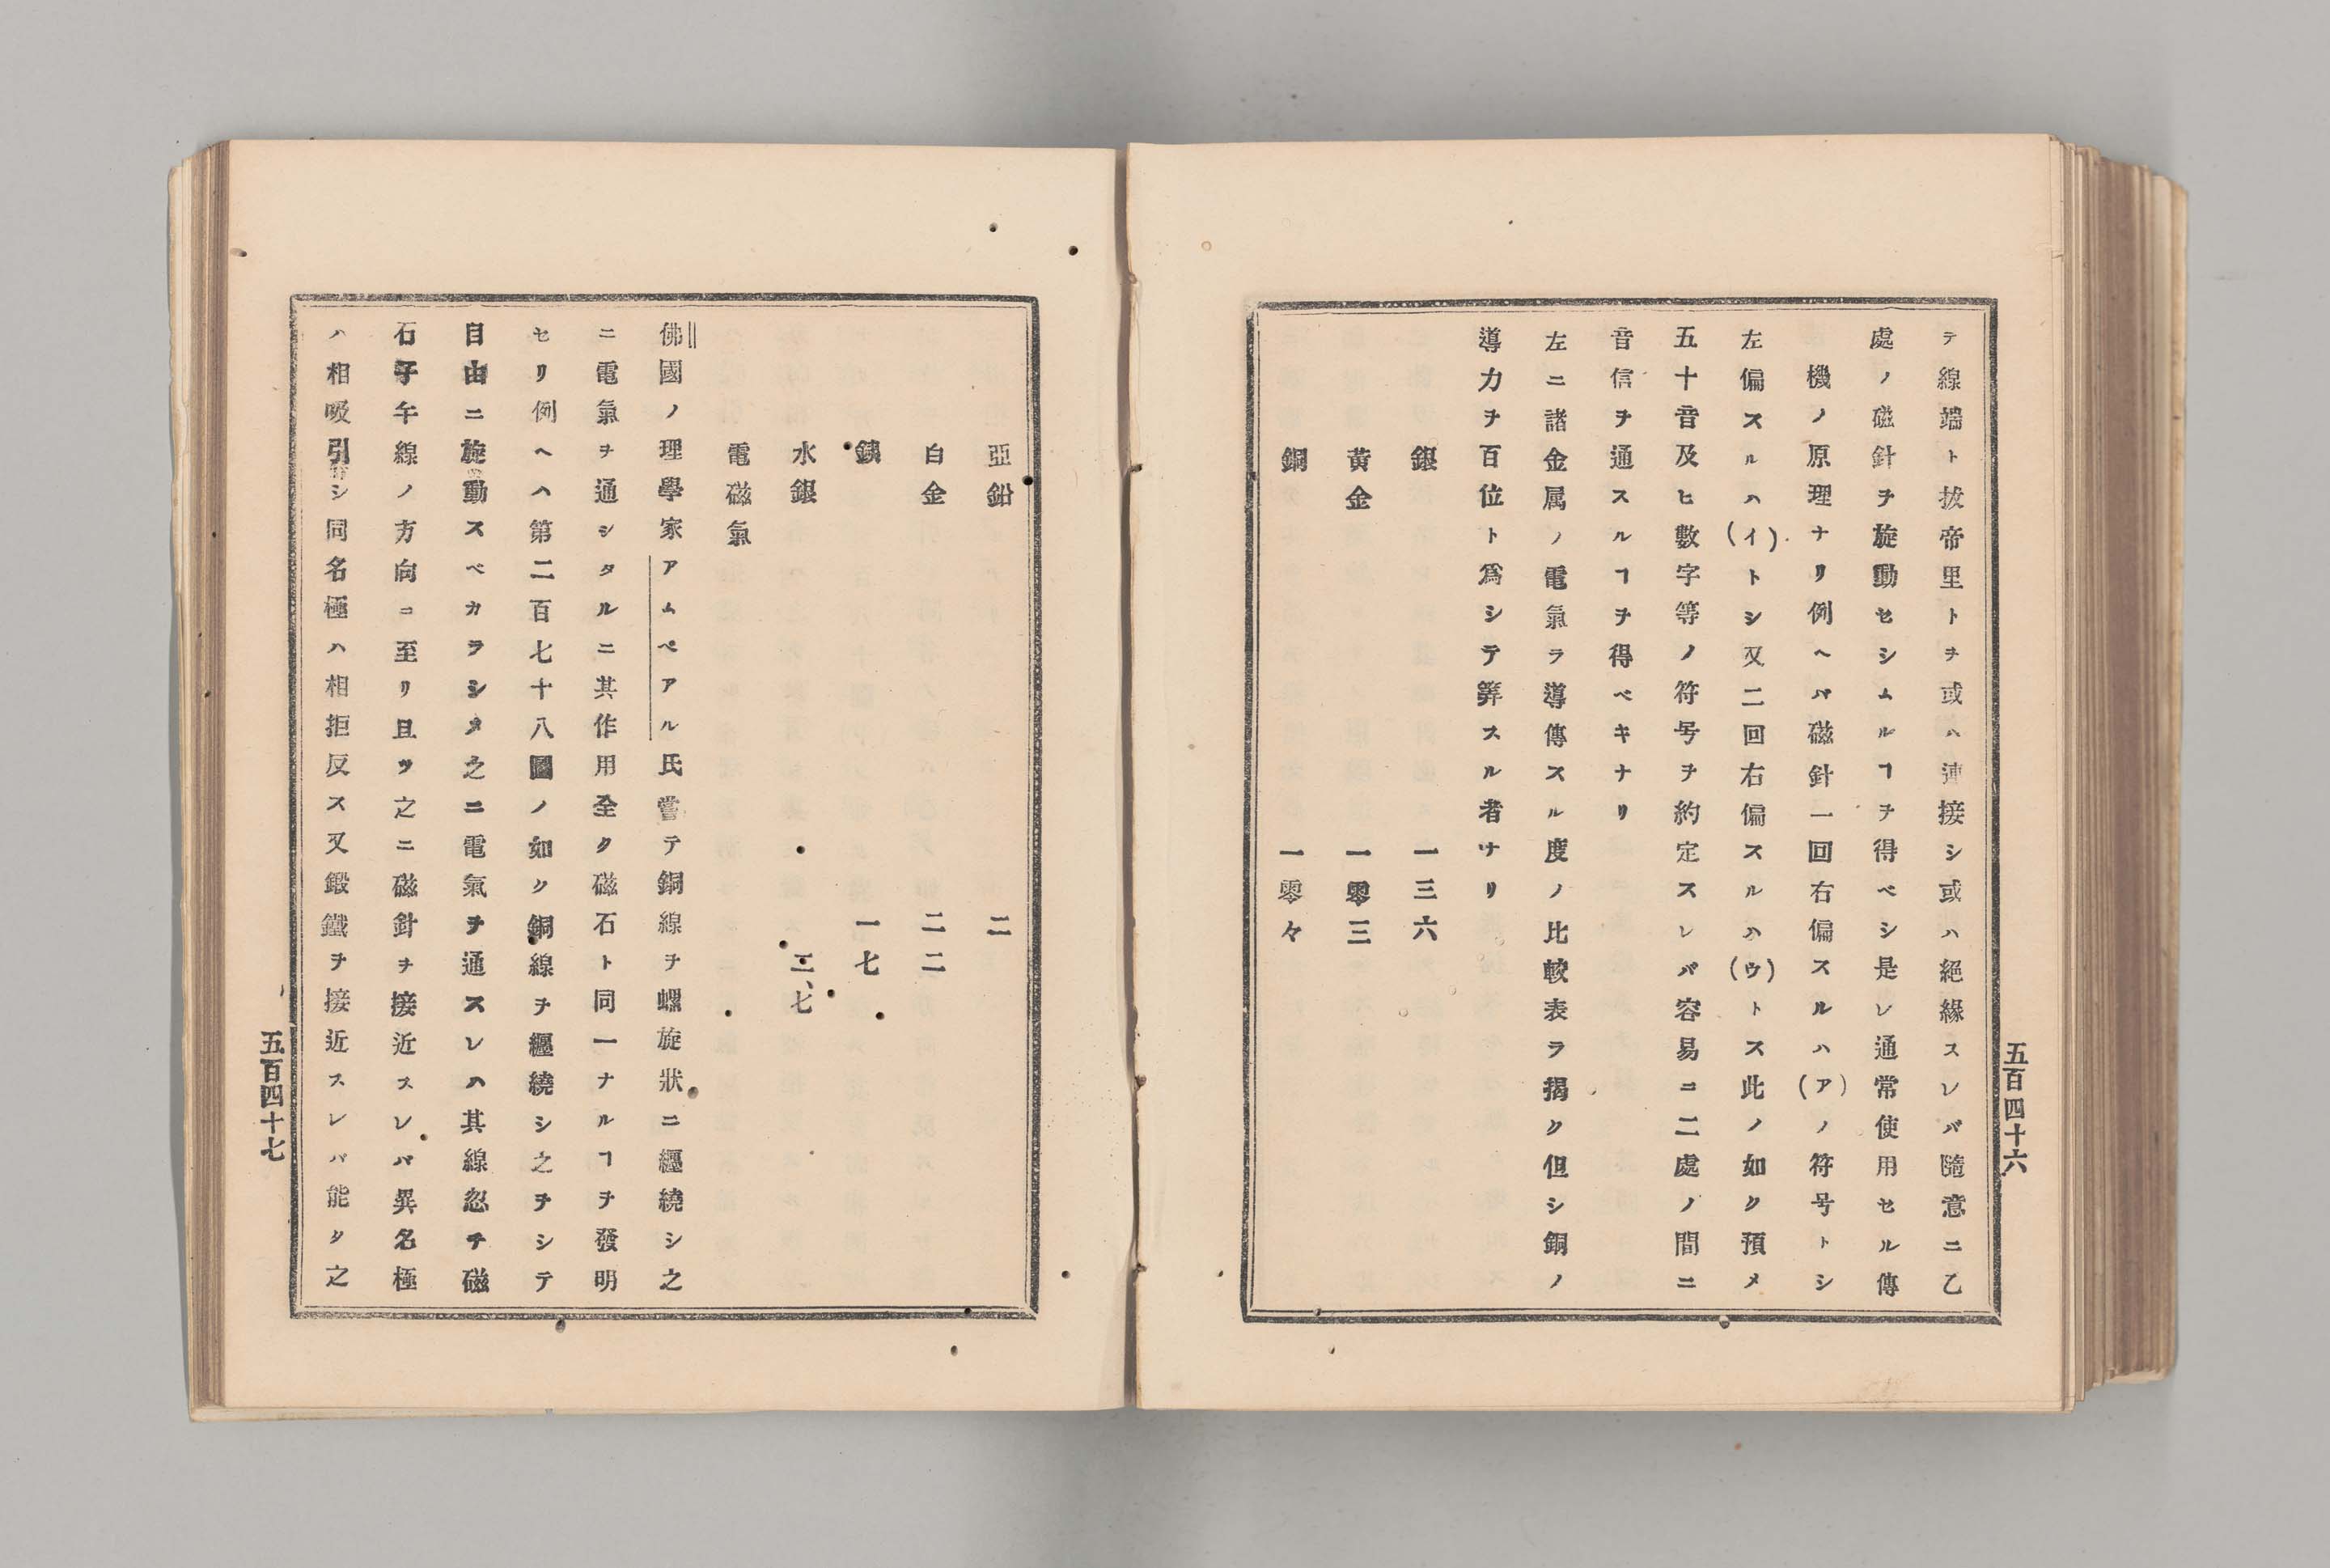 テ線端ト拔帝里トヲ或ハ連接シ或ハ絕緣スレバ隨意ニ乙
處ノ磁針ヲ旋動セシムルヿヲ得ベシ是レ通常使用セル傳
機ノ原理ナリ例ヘバ磁針一回右偏スルハ(ア)ノ符号トシ
左偏スルハ(イ)トシ又二回右偏スルハ(ウ)トス此ノ如ク預メ
五十音及ヒ數字等ノ符号ヲ約定スレバ容易ニ二處ノ間ニ
音信ヲ通スルヿヲ得ベキナリ
左ニ諸金属ノ電氣ヲ導傳スル度ノ比較表ヲ揭ク但シ銅ノ
導力ヲ百位ト爲シテ算スル者ナリ
銀 一三六
黃金 一零三
銅 一零々
五百四十六
亞鉛 二
白金 二二
鐵 一七
水銀 二、七
電磁氣
佛國ノ理學家アムペアル氏嘗テ銅線ヲ螺旋狀ニ纒繞シ之
ニ電氣ヲ通シタルニ其作用全ク磁石ト同一ナルヿヲ發明
セリ例ヘハ第二百七十八圖ノ如ク銅線ヲ纒繞シ之ヲシテ
自由ニ旋動スベカラシメ之ニ電氣ヲ通スレハ其線忽チ磁
石子午線ノ方向ニ至リ且ツ之ニ磁針ヲ接近スレバ異名極
ハ相吸引シ同名極ハ相拒反ス又鍛鐵ヲ接近スレバ能ク之
五百四十七